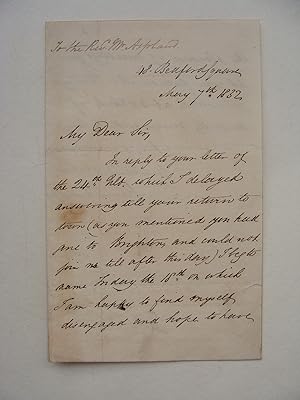 To the Revd. Mr. Aspland
48. Bedford Square
May 7th. 1832
My Dear Sir,
In reply to your letter of
the 24th. Ult. which I delayed
answering till your return to
town (as you mentioned you had
gone to Brighton, and could not
join me till after this day) I beg to
name Friday the 18th on which
I am happy to find myself
disengaged and hope to have